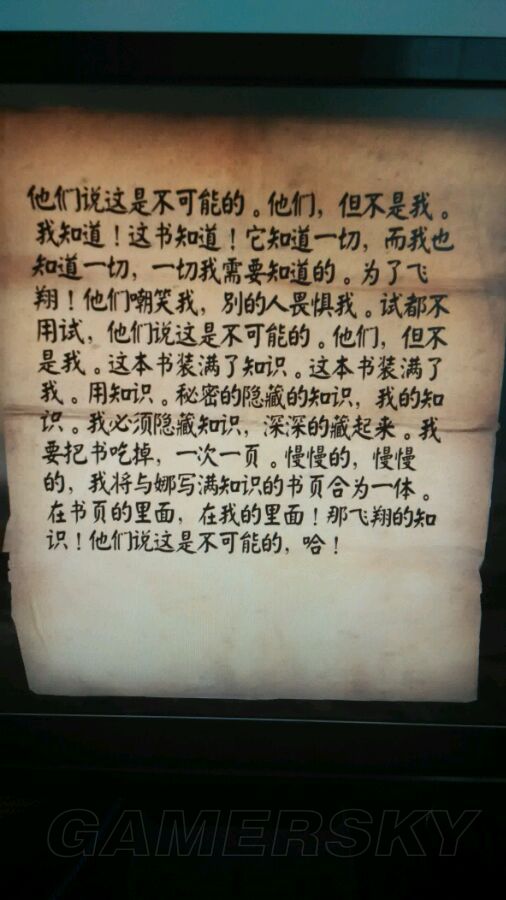 他们说这是不可能的。他们，但不是我。
我知道！这书知道！它知道一切，而我也
知道一切，一切我需要知道的。为了飞
翔！他们嘲笑我，别的人畏惧我。试都不
用试，他们说这是不可能的。他们，但不
是我。这本书装满了知识。这本书装满了
我。用知识。秘密的隐藏的知识，我的知
识。我必须隐藏知识，深深的藏起来。我
要把书吃掉，一次一页。慢慢的，慢慢
的，我将与娜写满知识的书页合为一体。
在书页的里面，在我的里面！那飞翔的知
识！他们说这是不可能的，哈！
GAMERSKY